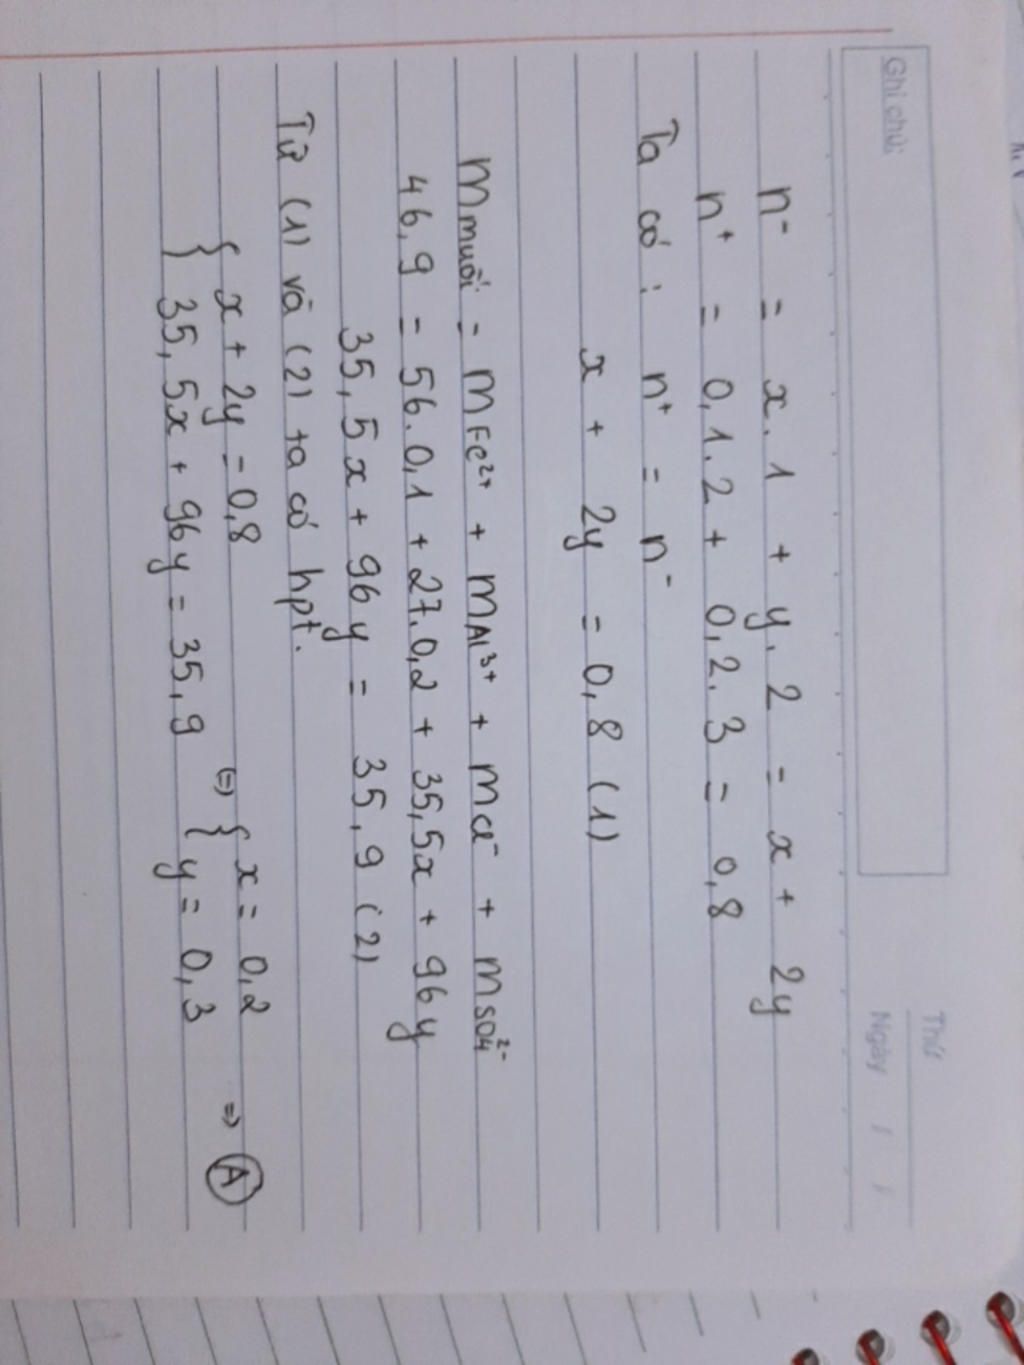 Ghi chú:
Thứ
Ngày / /
n⁻ = x.1 + y.2 = x + 2y
n⁺ = 0,1.2 + 0,2.3 = 0,8
Ta có: n⁺ = n⁻
x + 2y = 0,8 (1)
mmuối = mFe²⁺ + mAl³⁺ + mCl⁻ + mSO₄²⁻
46,9 = 56.0,1 + 27.0,2 + 35,5x + 96y
35,5x + 96y = 35,9 (2)
Từ (1) và (2) ta có hpt.
{ x + 2y = 0,8 (=) { x = 0,2 => A
{ 35,5x + 96y = 35,9 { y = 0,3